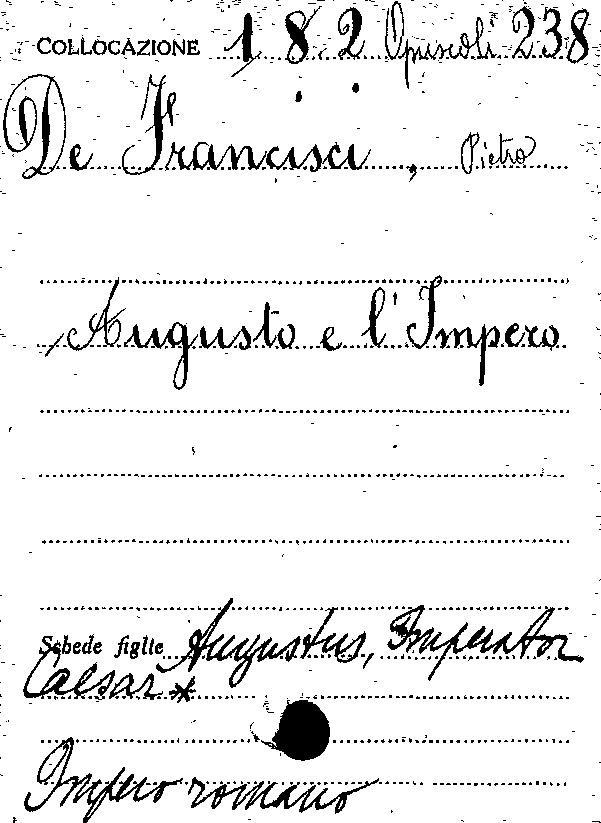 COLLOCAZIONE 182 Opuscoli 238
De Francisci, Pietro
Augusto e l'Impero
Schede figlie Augustus, Imperator
Caesar *
Impero romano